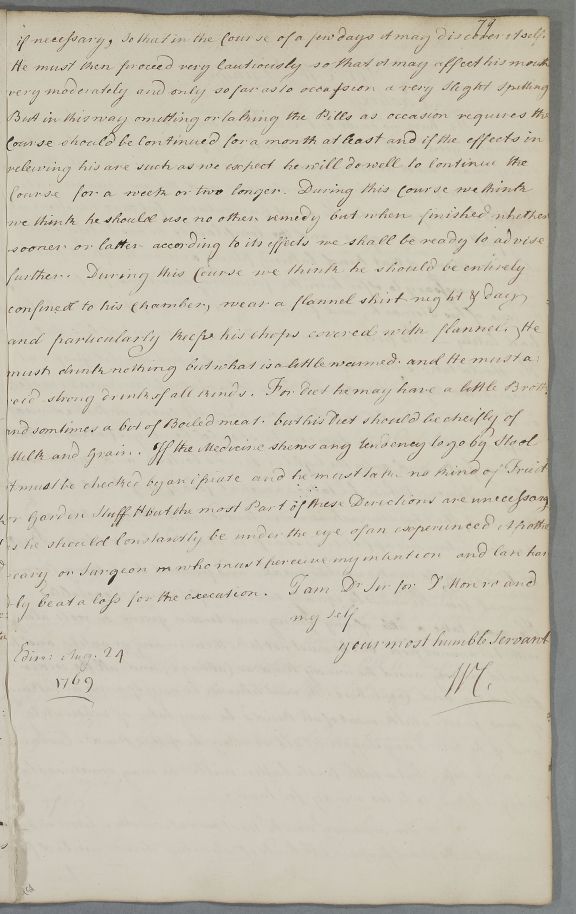 79
if necessary, so that in the Course of a few days it may discover itself.
He must then proceed very Cautiously so that it may affect his mouth
very moderately and only so far as to occasion a very slight spitting
But in this way omitting or taking the Pills as occasion requires the
Course should be Continued for a month at least and if the effects in
releiving his are such as we expect he will do well to Continue the
Course for a week or two longer. During this Course we think
we think he should use no other remedy but when finished whether
sooner or latter according to its effects we shall be ready to advise
further. During this Course we think he should be entirely
confined to his Chamber, wear a flannel shirt night & day,
and particularly keep his chops covered with flannel. He
must drink nothing but what is a little warmed. and He must a
void strong drinks of all kinds. For diet he may have a little Broth
and somtimes a bit of Boiled meat. but his Diet should be cheifly of
Milk and Grain. If the Medicine shews any tendency to go by Stool
it must be checked by an opiate and he must take no kind of Fruit
or Garden Stuff but the most Part of these Directions are unecessary
as he should Constantly be under the eye of an experienced Apothe
cary or Surgeon who must perceive my intention and Can har
ly be at a loss for the execution. I am Dr Sir for Dr Monro and
my self
your most humble Servant
Edinr. Aug. 24
1769
WC.